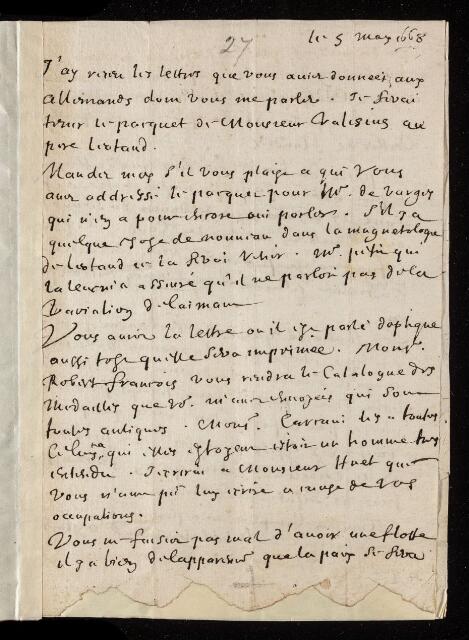 27
le 5 may 1668
J'ay receu les lettres que vous aviez données aux
allemands dont vous me parlez. Je ferai
tenir le pacquet de Monsieur Valisius au
pere Lestand.
Mandez moy s'il vous plaist a qui vous
avez addressé le pacquet pour Mr. de
qui n'en a point encore oui parler. S'il y a
quelque chose de nouveau dans la magnetologie
de Lestand je la ferai Mr. petit qui
l'a leu m'a assuré qu'il ne parloit pas de la
variation de laiman
Vous aurez la lettre ou il est parlé doptique
aussi tost quelle sera imprimée. Mons.
Robert françois vous rendra le Catalogue des
Medailles que vous m'avez envoyées qui sont
toutes antiques. Mons. les a toutes
qui estoit un homme tres
entendu. J'ecrirai a Monsieur Huet que
vous n'avez peu luy ecrire a cause de vos
occupations.
Vous ne faisiez pas mal d'avoir une flotte
il y a bien de lapparence que la paix se fera